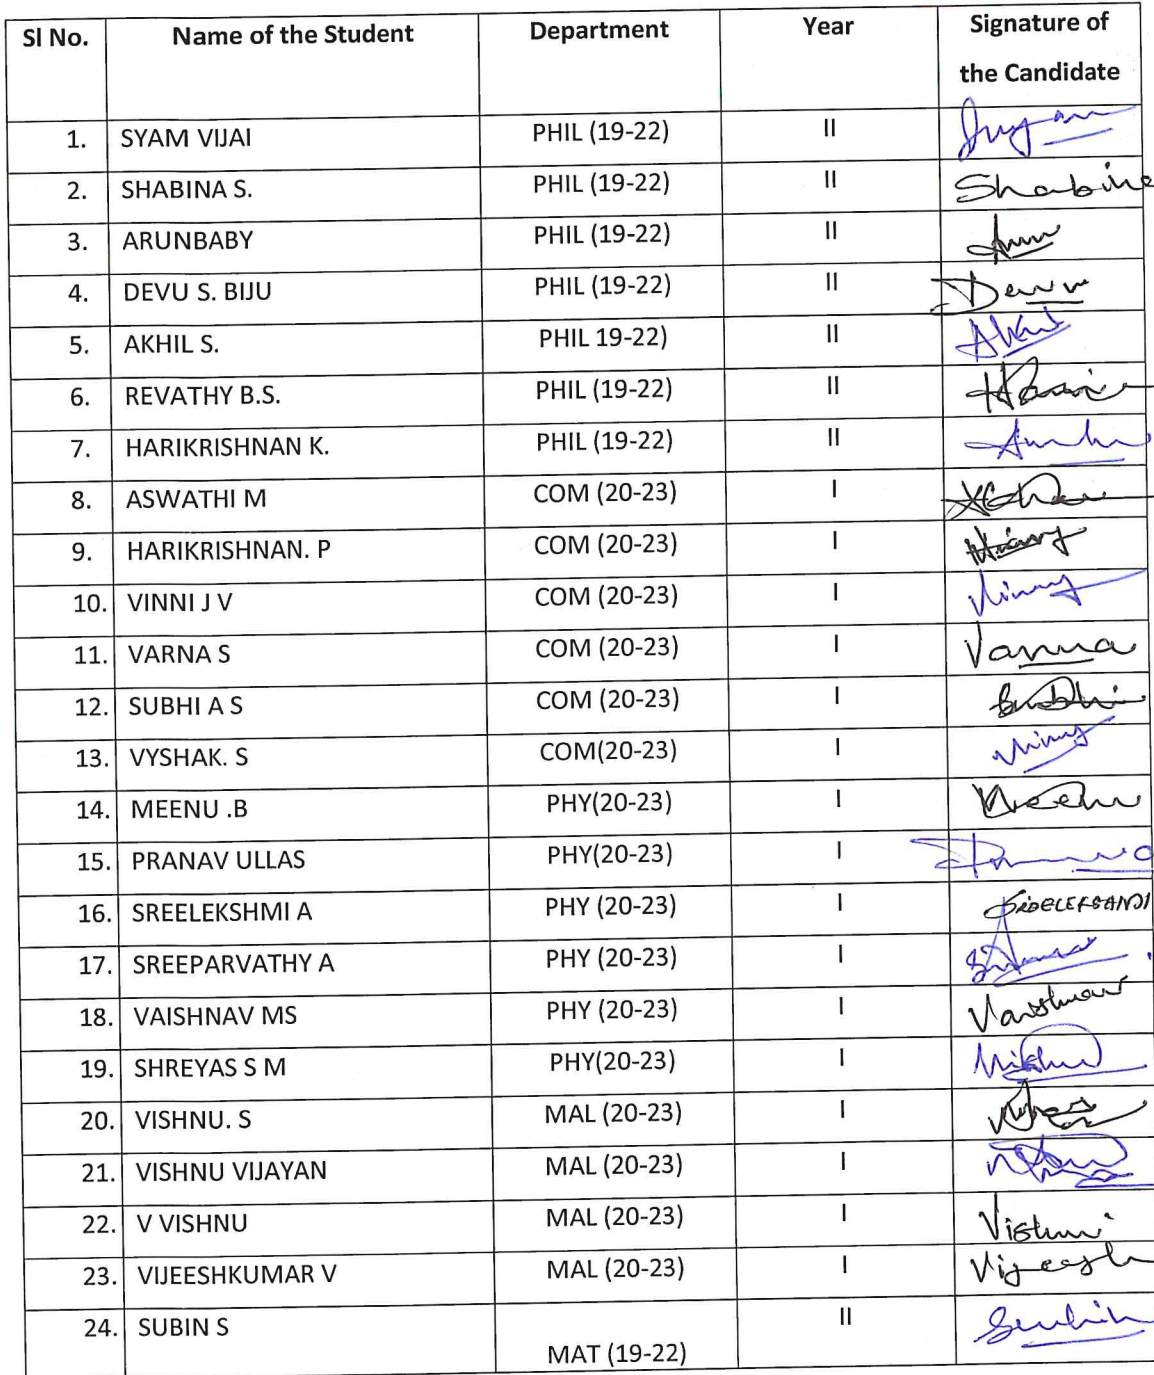 Sl No. Name of the Student Department Year Signature of
the Candidate
1. SYAM VIJAI PHIL (19-22) II
2. SHABINA S. PHIL (19-22) II Shabina
3. ARUNBABY PHIL (19-22) II
4. DEVU S. BIJU PHIL (19-22) II
5. AKHIL S. PHIL 19-22) II Akhil
6. REVATHY B.S. PHIL (19-22) II
7. HARIKRISHNAN K. PHIL (19-22) II
8. ASWATHI M COM (20-23) I
9. HARIKRISHNAN. P COM (20-23) I
10. VINNI J V COM (20-23) I
11. VARNA S COM (20-23) I Varna
12. SUBHI A S COM (20-23) I Subhi
13. VYSHAK. S COM(20-23) I
14. MEENU .B PHY(20-23) I Meenu
15. PRANAV ULLAS PHY(20-23) I
16. SREELEKSHMI A PHY (20-23) I
17. SREEPARVATHY A PHY (20-23) I
18. VAISHNAV MS PHY (20-23) I Vaishnav
19. SHREYAS S M PHY(20-23) I
20. VISHNU. S MAL (20-23) I
21. VISHNU VIJAYAN MAL (20-23) I
22. V VISHNU MAL (20-23) I Vishnu
23. VIJEESHKUMAR V MAL (20-23) I Vijeesh
24. SUBIN S MAT (19-22) II Subin